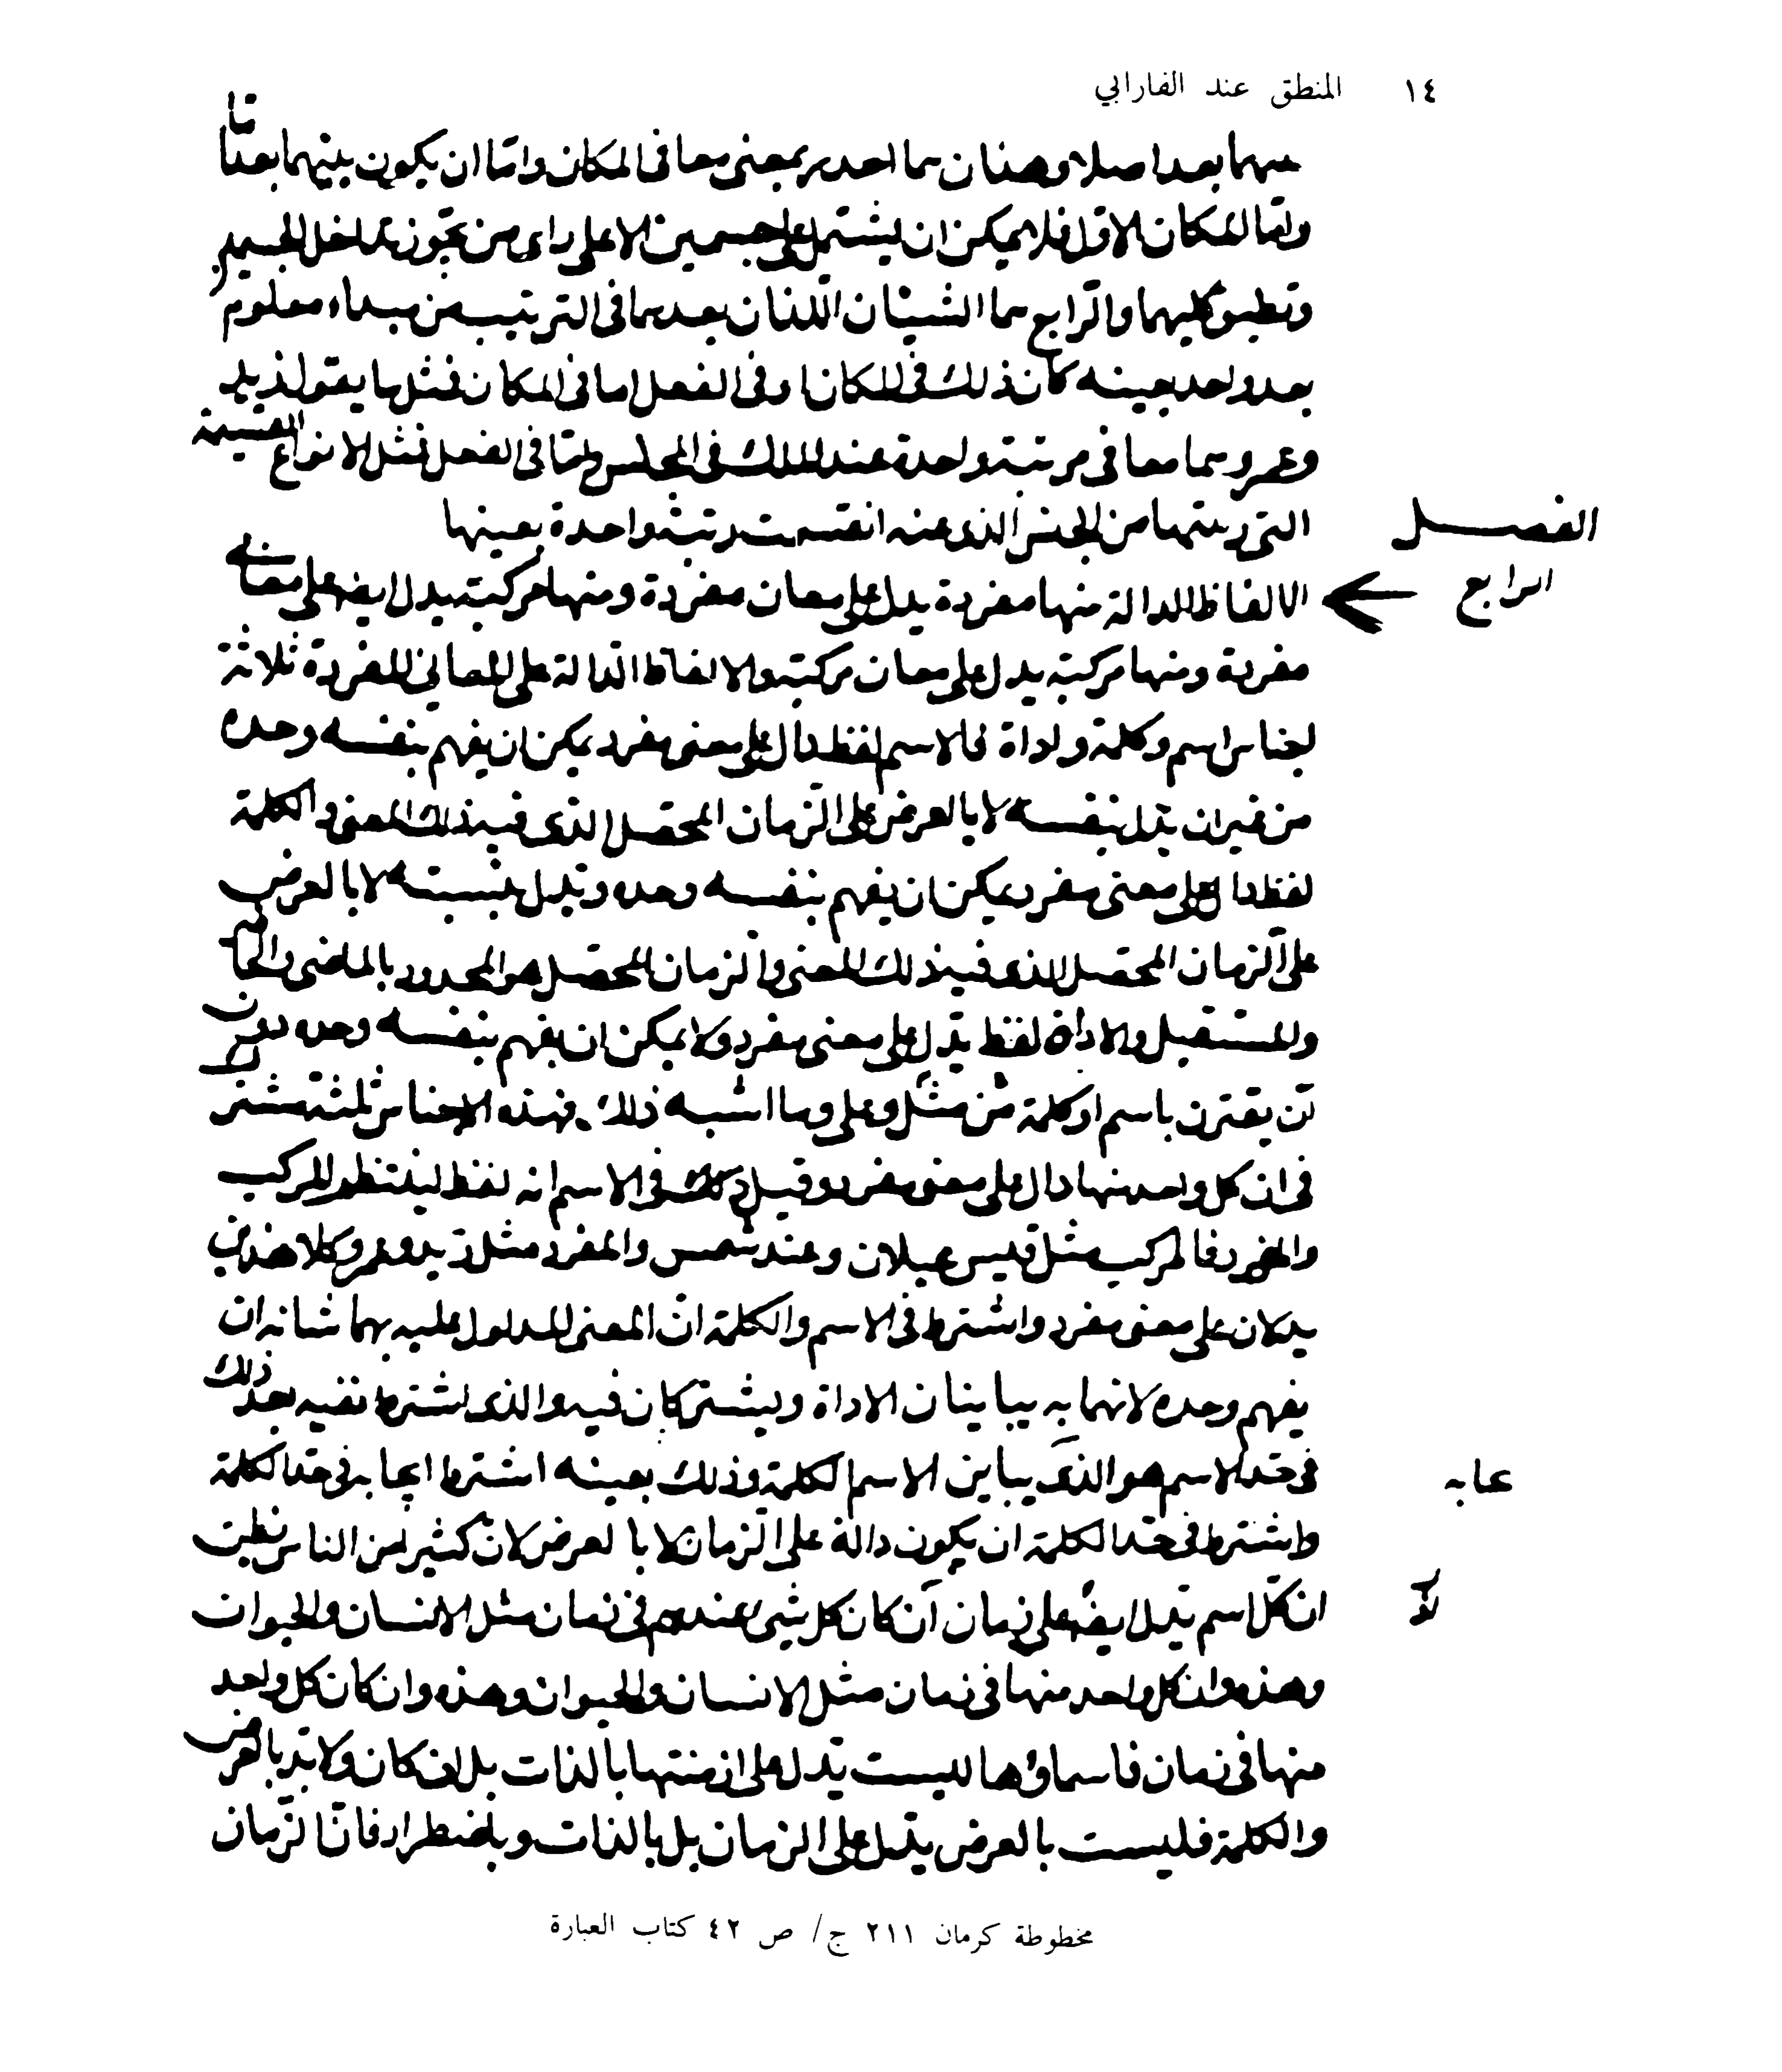 ١٤ المنطق عند الفارابي
بينهما بعد اصلا وهذان هما احد بمعنى معا فى المكان واما ان يكون بينهما بعد ما
واما المكان الاول فلا يمكن ان يشتمل على جسمين الا على راى من يجوز تداخل الجسمين
وتطبيق كليهما والرابع هما الشيئان اللذان بعدهما فى الترتيب من مبداء معلوم
بعد واحد بعينه كان ذلك فى المكان او فى الفعل اما فى المكان فمثل ما يقول زيد
وعمرو هما معا فى مرتبة واحدة عند الملك فى المجلس واما فى الفعل فمثل الانواع القسيمة
التى رتبتها من الجنس الذى عنه انقسمت رتبة واحدة بعينها
الفصل
الرابع
الالفاظ الدالة منها مفردة يدل على معان مفردة ومنها مركبة يدل ايضا على معان
مفردة ومنها مركبة يدل على معان مركبة والالفاظ الدالة على المعانى المفردة ثلاثة
اجناس اسم وكلمة واداة فالاسم لفظ دال على معنى مفرد يمكن ان يفهم بنفسه وحده
من غير ان يدل بنفسه لا بالعرض على الزمان المحصل الذى فيه ذلك المعنى والكلمة
لفظ دال على معنى مفرد يمكن ان يفهم بنفسه وحده ويدل بنيته لا بالعرض
على الزمان المحصل الذى فيه ذلك المعنى والزمان المحصل هو المحدود بالماضى والحاضر
والمستقبل والاداة لفظ يدل على معنى مفرد ولا يمكن ان يفهم بنفسه وحده دون
ان يقترن باسم او كلمة مثل من وعلى وما اشبه ذلك فهذه الاجناس ثلثة تشترك
فى ان كل واحد منها دال على معنى مفرد وقيل ذلك فى الاسم انه لفظ لينتظم المركب
والمفرد فالمركب مثل قيس عيلان وعبد شمس والمفرد مثل زيد وعمرو وكلا هذين
يدلان على معنى مفرد واشترط فى الاسم والكلمة ان المعنى المدلول عليه بهما شانه ان
يفهم وحده لانهما به يباينان الاداة ويشتركان فيه والذى اشترط نفيه بعد ذلك
فى حد الاسم هو الذى يباين الاسم الكلمة وذلك بعينه اشترط ايجابه فى حد الكلمة
عابه
واشترط فى حد الكلمة ان يكون دالة على الزمان لا بالعرض لان كثير من الناس يظن
ان كل اسم يدل ايضا على زمان ان كان كل شيئ عندهم فى زمان مثل الانسان والحيوان
لا
وهذه وان كل واحد منها فى زمان مثل الانسان والحيوان وهذه وان كان كل واحد
منها فى زمان فاسماؤها ليست يدل على ازمنتها بالذات بل ان كان ولا بد بالعرض
والكلمة فليست بالعرض يدل على الزمان بل بالذات وباضطرار فان الزمان
مخطوطة كرمان ٢١١ ج/ ص ٤٢ كتاب العبارة